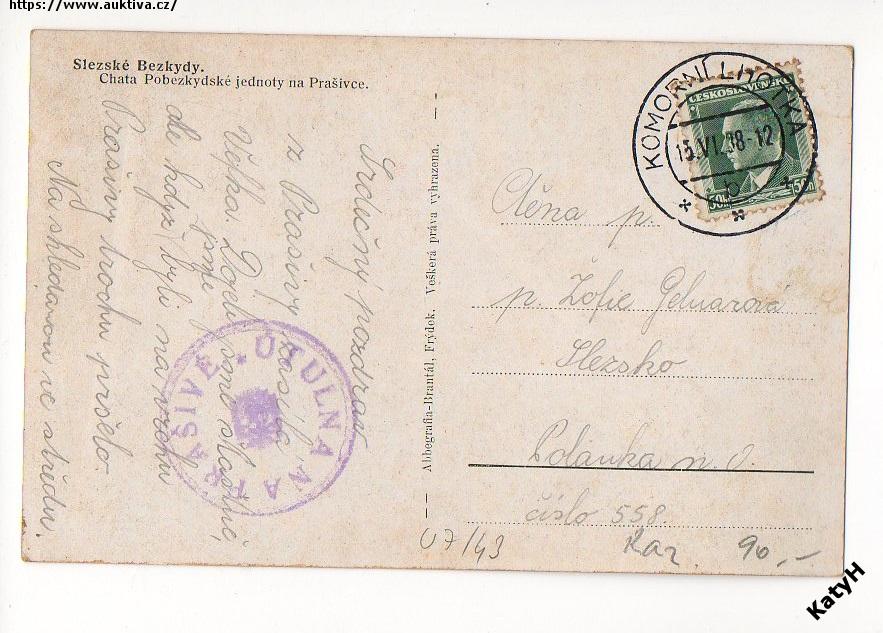 https://www.auktiva.cz/
Slezské Bezkydy.
Chata Pobezkydské jednoty na Prašivce.
Srdečný pozdrav
z Prašivy zasílá
Vojta. Dojeli sme šťastně,
jsme
ale když byli na vrchu
Prašivy trochu pršelo.
Na shledanou ve středu.
OTULNA NA PRAŠIVÉ
Abbegrafia-Brantál, Frýdek. Veškerá práva vyhrazena.
KOMORNÍ LHOTKA
15.VI.38-12
b
ČESKOSLOVENSKO
50h 50h
Ctěna p.
p. Žofie Geluarová
Slezsko
Polanka n. O.
číslo 558.
07/43
Raz 90,-
KatyH